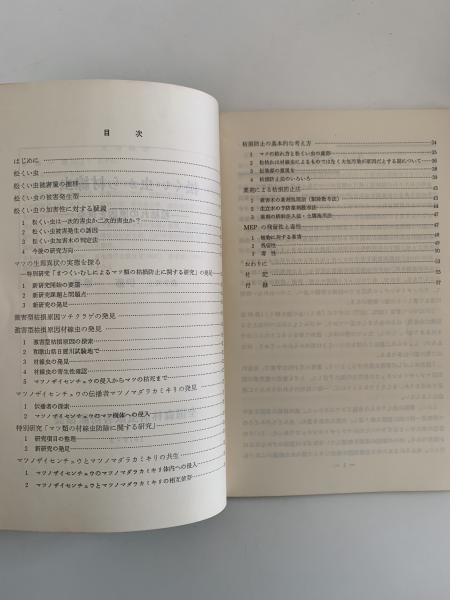 目次
はじめに
松くい虫
松くい虫被害量の推移
松くい虫の被害発生型
松くい虫の加害性に対する疑義
1 松くい虫は一次的害虫か二次的害虫か？
2 松くい虫被害発生の誘因
3 松くい虫加害木の判定法
4 今後の研究方向
マツの生理異状の実態を探る
―特別研究「まつくいむしによるマツ類の枯損防止に関する研究」の発足
1 新研究開始の要請
2 新研究課題と問題点
3 新研究の発足
激害型枯損原因ツチクラゲの発見
激害型枯損原因材線虫の発見
1 激害型枯損原因の探索
2 和歌山県日置川試験地で
3 材線虫の発見
4 材線虫の寄生性確認
5 マツノザイセンチュウの侵入からマツの枯死まで
マツノザイセンチュウの伝播者マツノマダラカミキリの発見
1 伝播者の探索
2 マツノザイセンチュウのマツ樹体への侵入
特別研究「マツ類の材線虫防除に関する研究」
1 研究項目の推理
2 新研究の発足
マツノザイセンチュウとマツノマダラカミキリの共生
1 マツノザイセンチュウのマツノマダラカミキリ体内への侵入
2 マツノザイセンチュウとマツノマダラカミキリの相互依存
枯損防止の基本的な考え方 34
1 マツの枯れ方と松くい虫の薬剤 35
2 松枯れは材線虫によるものではなく大気汚染が原因だとする説について 36
3 伝染源の重視を 38
4 枯損防止法のいろいろ
薬剤による枯損防止法 43
1 被害木の薬剤処理法（駆除散布法） 43
2 生立木の予防薬剤散布法 44
3 薬剤の樹幹注入法・土壌施用法 48
MEPの残留性と毒性
1 植物に対する薬害
2 残留性 50
3 毒性
おわりに
付記
付録 57
― 1 ―